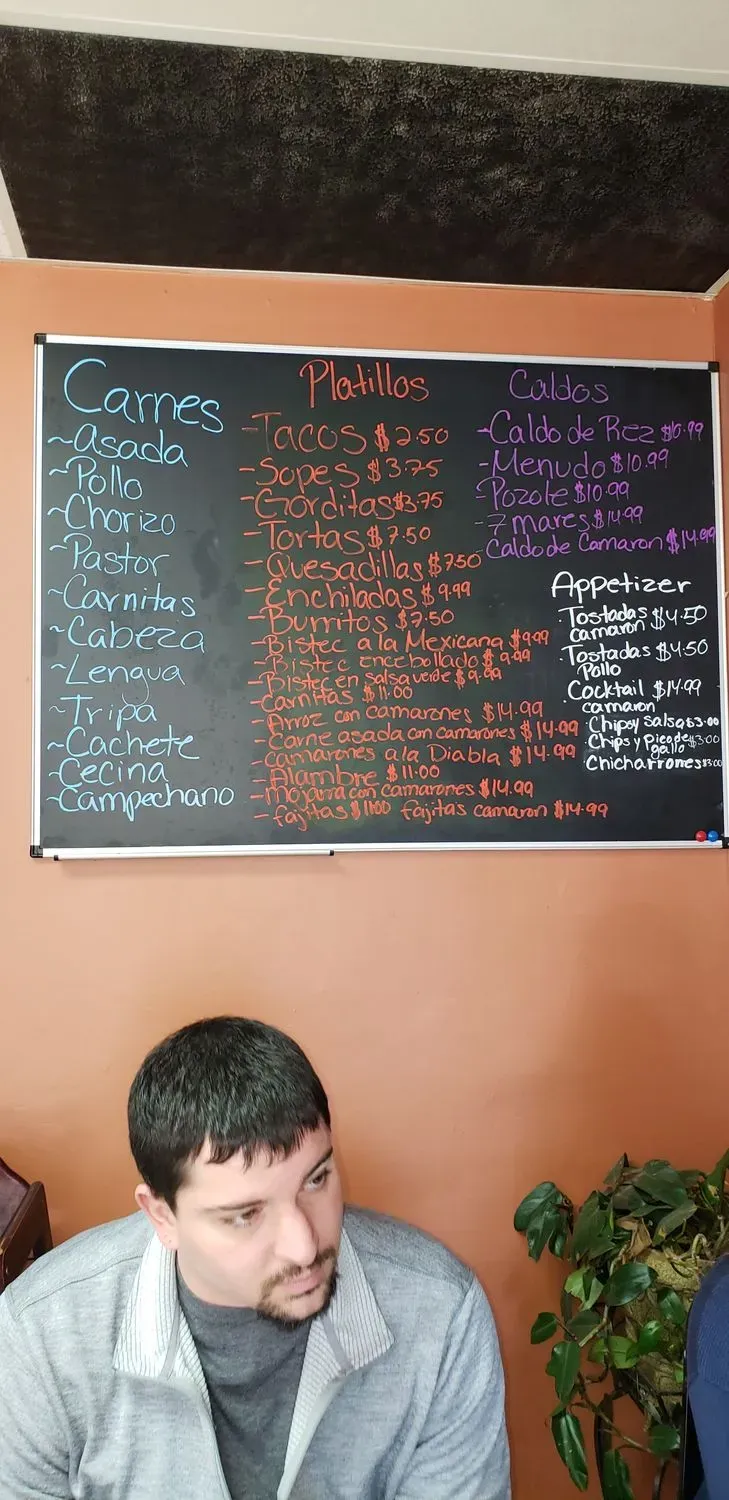 Carnes
~Asada
~Pollo
~Chorizo
~Pastor
~Carnitas
~Cabeza
~Lengua
~Tripa
~Cachete
~Cecina
~Campechano
Platillos
-Tacos $2.50
-Sopes $3.75
-Gorditas $3.75
-Tortas $7.50
-Quesadillas $7.50
-Enchiladas $9.99
-Burritos $7.50
-Bistec a la Mexicana $9.99
-Bistec encebollado $9.99
-Bistec en salsa verde $9.99
-Carnitas $11.00
-Arroz con camarones $14.99
-Carne asada con camarones $14.99
-camarones a la Diabla $14.99
-Alambre $11.00
-mojarra con camarones $14.99
-fajitas $11.00 fajitas camaron $14.99
Caldos
-Caldo de Rez $10.99
-Menudo $10.99
-Pozole $10.99
-7 mares $14.99
Caldo de Camaron $14.99
Appetizer
·Tostadas $4.50
camaron
·Tostadas $4.50
Pollo
Cocktail $14.99
camaron
·Chips y salsa $3.00
·Chips y pico de $3.00
gallo
Chicharrones $3.00